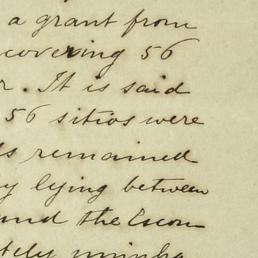 a grant from
covering 56
r. It is said
56 sitios were
ds remained
y lying between
und the Escon
tely uninha